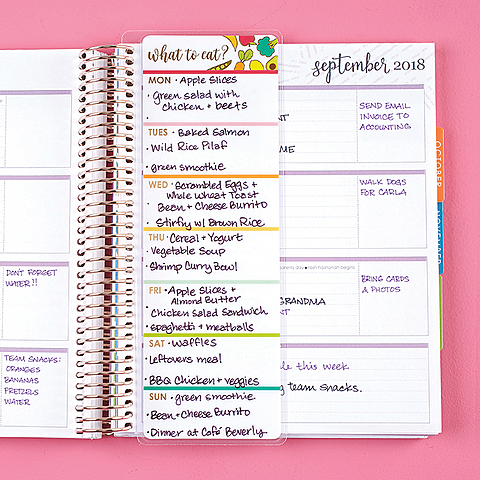 what to eat?
MON • Apple Slices
• Green salad with
chicken + beets
•
TUES • Baked Salmon
• Wild Rice Pilaf
• green smoothie
WED • Scrambled Eggs +
Whole Wheat Toast
• Bean + Cheese Burrito
• Stirfry w/ Brown Rice
THU • Cereal + Yogurt
• Vegetable Soup
• Shrimp Curry Bowl
FRI • Apple Slices +
Almond Butter
• Chicken Salad Sandwich
• spaghetti + meatballs
SAT • Waffles
• Leftovers meal
• BBQ Chicken + veggies
SUN • green smoothie
• Bean + Cheese Burrito
• Dinner at Café Beverly
DON'T FORGET
WATER!!
TEAM SNACKS:
ORANGES
BANANAS
PRETZELS
WATER
september 2018
SEND EMAIL
INVOICE TO
ACCOUNTING
WALK DOGS
FOR CARLA
BRING CARDS
& PHOTOS
GRANDMA
this week
team snacks.
OCTOBER
NOVEMBER